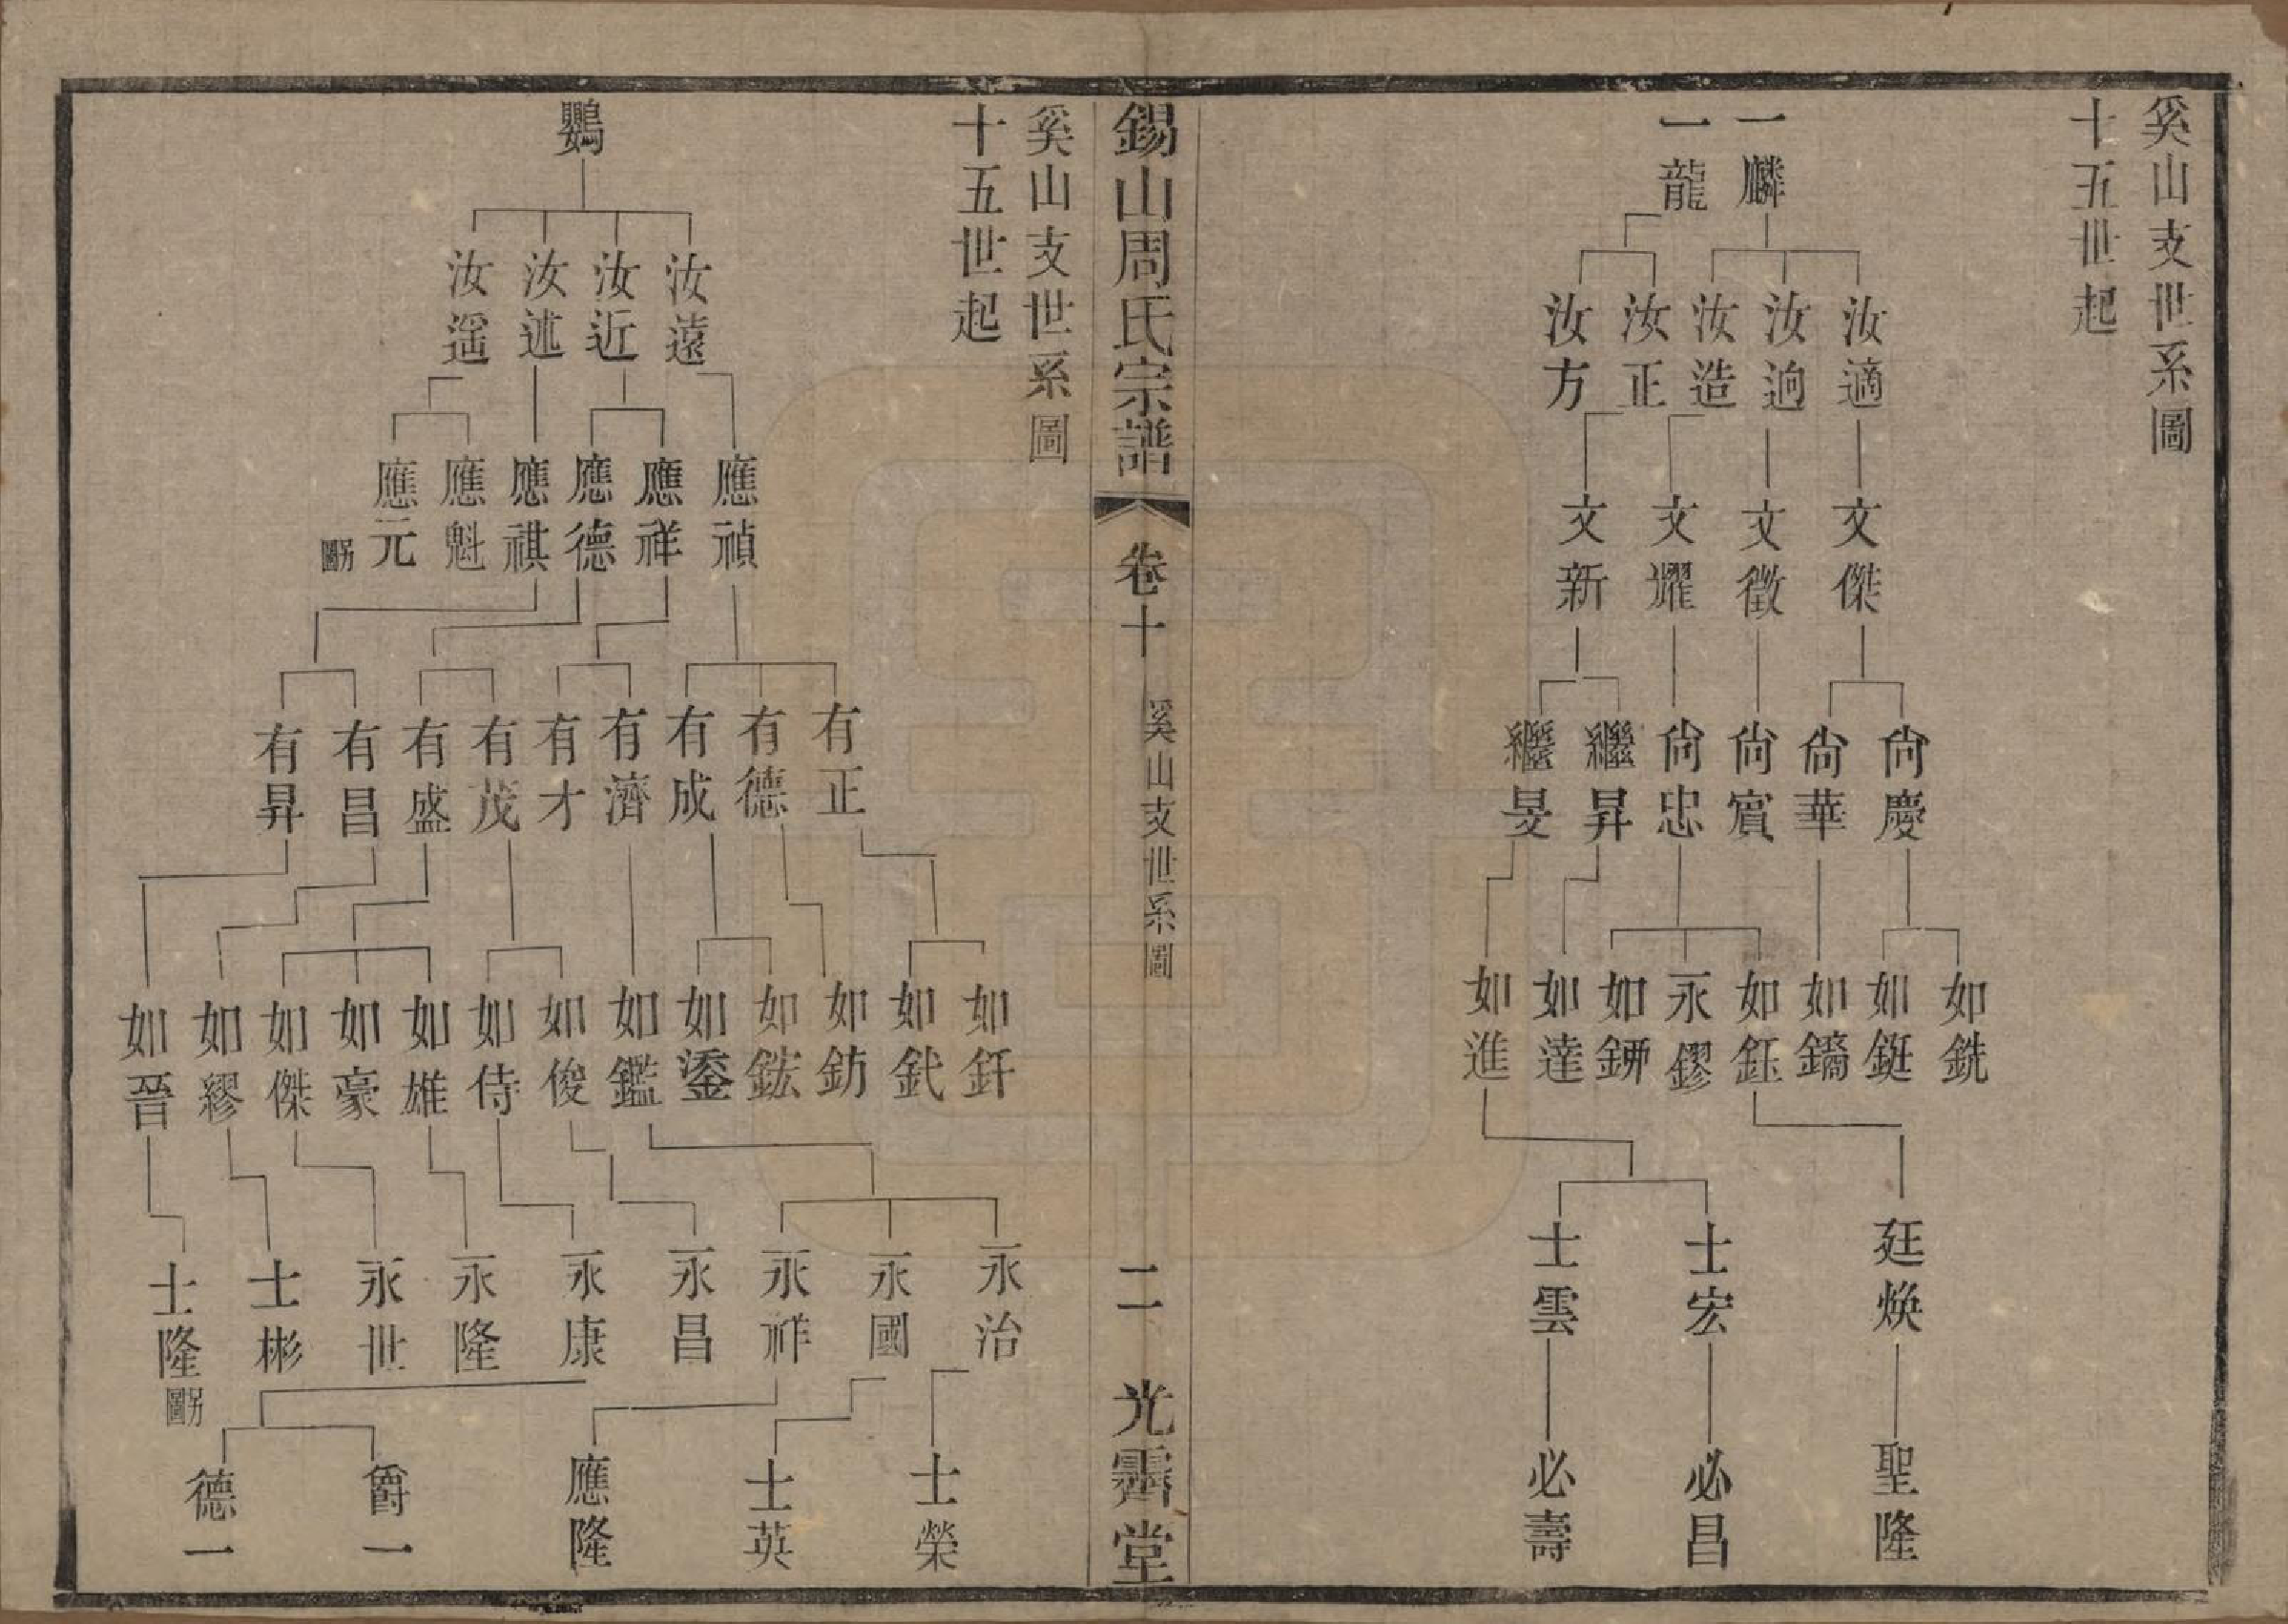 奚山支世系圖
十五世起
一麟
一龍
汝適
汝逈
汝造
汝正
汝方
文傑
文徵
文耀
文新
尙慶
尙華
尙賓
尙忠
繼昇
繼旻
如銑
如鋌
如鐫
如鈺
永鏐
如鉶
如達
如進
廷煥
士宏
士雲
聖隆
必昌
必壽
錫山周氏宗譜
卷十
奚山支世系圖
二
光霽堂
奚山支世系圖
十五世起
鸚
汝遠
汝近
汝述
汝遥
應禎
應祥
應德
應祺
應魁
應元
另圖
有正
有德
有成
有濟
有才
有茂
有盛
有昌
有昇
如釬
如釴
如鈁
如鋐
如鋈
如鑑
如俊
如侍
如雄
如豪
如傑
如繆
如晉
永治
永國
永祥
永昌
永康
永隆
永世
士彬
士隆
另圖
士榮
士英
應隆
爵一
德一